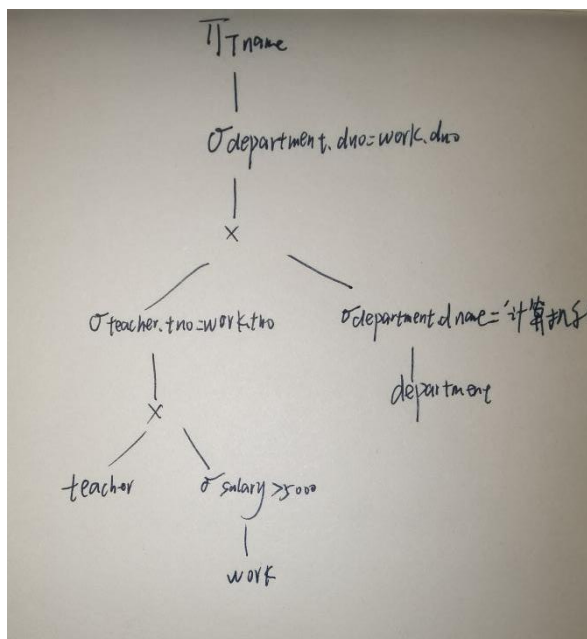 π Tname
σ department.dno=work.dno
×
σ teacher.tno=work.tno
σ department.dname='计算机
×
department
teacher
σ salary>5000
work